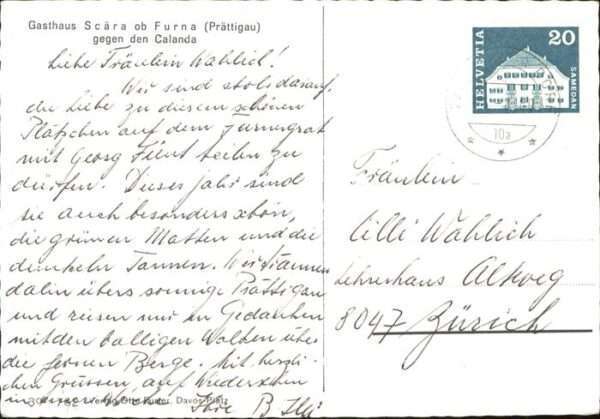 Gasthaus Scära ob Furna (Prättigau)
gegen den Calanda
Liebe Fräulein Wahlich!
Wir sind stolz darauf,
die Liebe zu diesem schönen
Plätzchen auf dem Furnergrat
mit Georg Fient teilen zu
dürfen. Dieses Jahr sind
sie auch besonders schön,
die grünen Matten und die
dunkeln Tannen. Wir träumen
dahin übers sonnige Prättigau
und reisen nur in Gedanken
mit den balligen Wolken über
die fernen Berge. Mit herzli-
chen Grüssen, auf Wiedersehn
in
Verlag Otto Furter, Davos-Platz
Ihre B.
HELVETIA
20
SAMEDAN
10a
Fräulein
Cilli Wahlich
Lehrerhaus Altweg
8047 Zürich